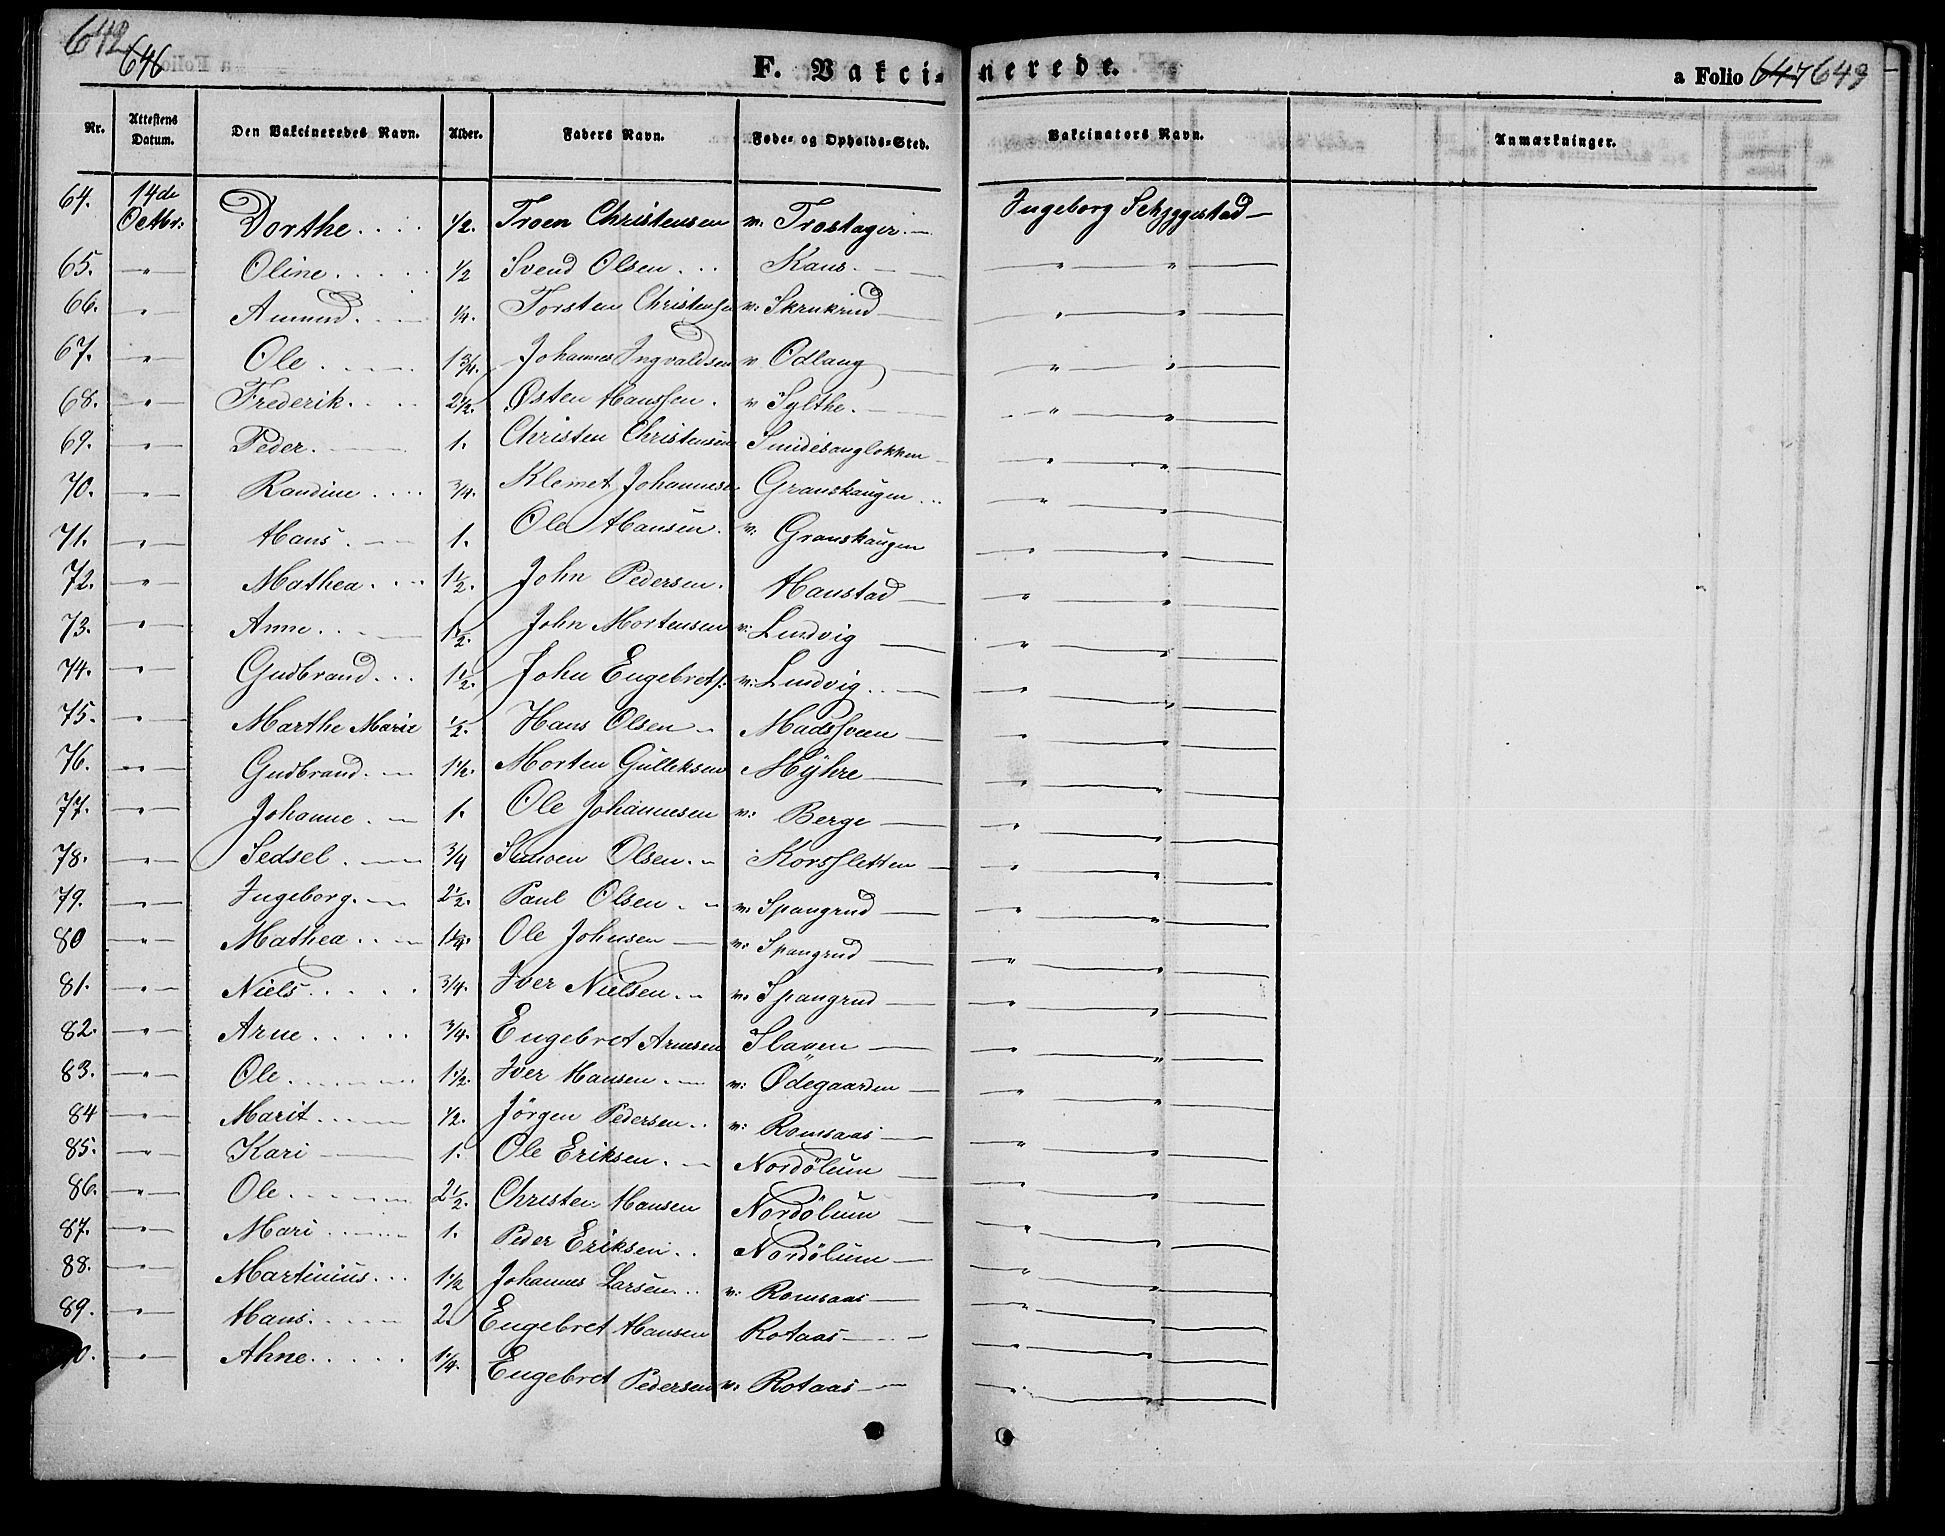 642 646
F. Vakcinerede.
a Folio 647 643
Nr. Attestens Datum. Den Vakcineredes Navn. Alder. Faders Navn. Føde- og Opholds-Sted. Vakcinators Navn. Anmærkninger.
64. 14de Octbr: Dorthe.... 1/2. Troen Christensen v: Trostager.— Ingeborg Schjggestad—
65. —"— Oline..... 1/2 Svend Olsen... Kaus.— —"—"—
66. —"— Amund.— 1/4. Torsten Christensen v: Skrukrud— —"—"—
67. —"— Ole.— 1 3/4. Johannes Ingvaldsen v Odlaug— —"—"—
68. —"— Frederik.... 2 1/2. Østen Hanssen. v Sylthe.— —"—"—
69. —"— Peder.— 1. Christen Christensen Smidesangløkken— —"—"—
70. —"— Randine.... 3/4. Klemet Johannesen Granshaugen... —"—"—
71. —"— Hans.— 1. Ole Hansen. v: Granshaugen —"—"—
72. —"— Mathea.... 1 1/2. John Pedersen. Haustad— —"—"—
73. —"— Anne... 1 1/2. John Mortensen v: Lundvig— —"—"—
74. —"— Gudbrand... 1 1/2. John Engebrets. v: Lundvig..— —"—"—
75. —"— Marthe Marie 1/2. Hans Olsen— Madssveen— —"—"—
76. —"— Gudbrand.— 1 1/2. Morten Gulleksen Myhre— —"—"—
77. —"— Johanne.— 1. Ole Johannesen v: Berge— —"—"—
78. —"— Sedsel.— 3/4 Simoen Olsen.— Korssletten— —"—"—
79. —"— Ingeborg.— 2 1/2. Paul Olsen.— v: Spangrud— —"—"—
80 —"— Mathea..— 1 1/4. Ole Johnsen— v: Spangrud— —"—"—
81. —"— Niels..... 3/4. Iver Nielsen.— v: Spangrud— —"—"—
82. —"— Arne..... 3/4. Engebret Arnesen Slaaen— —"—"—
83. —"— Ole...... 1 1/2. Iver Hansen.— v: Ødegaarden— —"—"—
84 —"— Marit.... 1/2. Jörgen Pedersen.. v: Romsaas— —"—"—
85. —"— Kari— 1. Ole Eriksen.— Nordölum— —"—"—
86. —"— Ole..... 2 1/2. Christen Hansen Nordölum— —"—"—
87. —"— Mari.... 1. Peder Eriksen.. Nordölum— —"—"—
88. —"— Martinius... 1 1/2 Johannes Larsen.. v: Romsaas— —"—"—
89. —"— Hans..... 2. Engebret Hansen Rotaas— —"—"—
0. —"— Ahne..... 1 1/4. Engebret Pedersen v: Rotaas— —"—"—